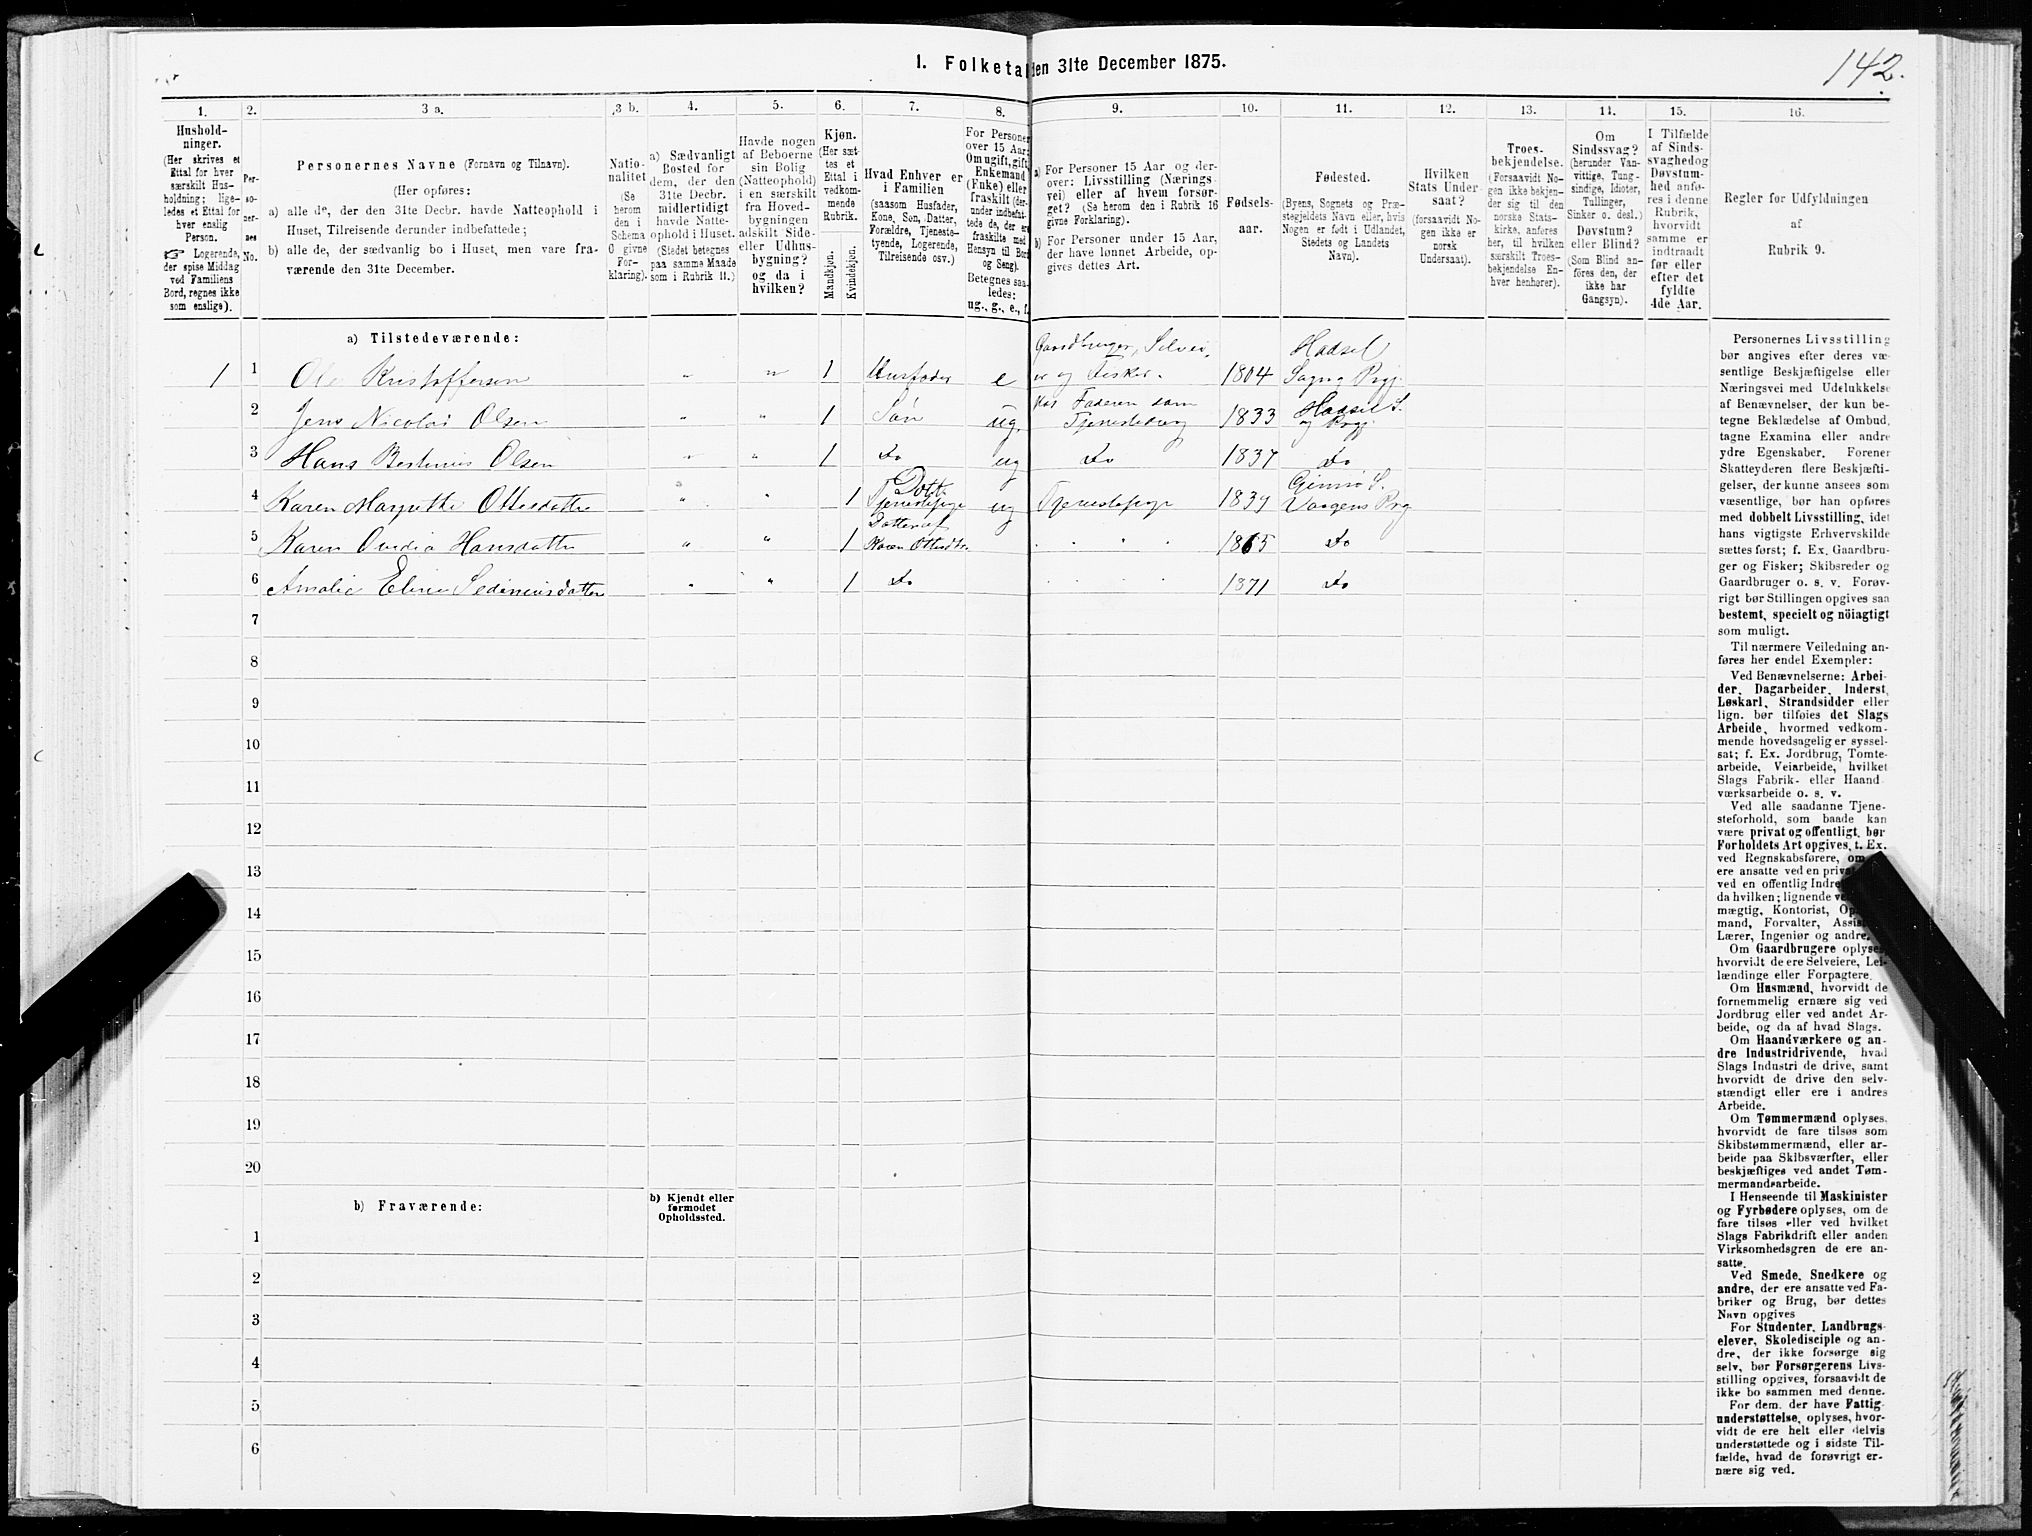 1. Folketal den 31te December 1875.
142.
1.
2.
3 a.
3 b.
4.
5.
6.
7.
8.
9.
10.
11.
12.
13.
14.
15.
16.
Hushold-
ninger.
(Her skrives et
Ettal for hver
særskilt Hus-
holdning; lige-
ledes et Ettal for
hver enslig
Person.
☞ Logerende,
der spise Middag
ved Familiens
Bord, regnes ikke
som enslige).
Per-
so-
ner-
nes
No.
Personernes Navne (Fornavn og Tilnavn).
(Her opføres:
a) alle de, der den 31te Decbr. havde Natteophold i
Huset, Tilreisende derunder indbefattede;
b) alle de, der sædvanlig bo i Huset, men vare fra-
værende den 31te December.
Natio-
nalitet
(Se
herom
den i
Schema
O givne
For-
klaring).
a) Sædvanligt
Bosted for
dem, der den
31te Decbr.
midlertidigt
havde Natte-
ophold i Huset.
(Stedet betegnes
paa samme Maade
som i Rubrik 11.)
Havde nogen
af Beboerne
sin Bolig
(Natteophold)
i en særskilt
fra Hoved-
bygningen
adskilt Side-
eller Udhus-
bygning?
og da i
hvilken?
Kjøn.
(Her sæt-
tes et
Ettal i
vedkom-
mende
Rubrik.
Mandkjøn.
Kvindekjøn.
Hvad Enhver er
i Familien
(saasom Husfader,
Kone, Søn, Datter,
Forældre, Tjeneste-
tyende, Logerende,
Tilreisende osv.)
For Personer
over 15 Aar:
Om ugift, gift,
Enkemand
(Enke) eller
fraskilt (der-
under indbefat-
tede de, der ere
fraskilte med
Hensyn til Bord
og Seng).
Betegnes saa-
ledes:
ug., g., e., f.
a) For Personer 15 Aar og der-
over: Livsstilling (Nærings-
vei) eller af hvem forsør-
get? (Se herom den i Rubrik 16
givne Forklaring).
b) For Personer under 15 Aar,
der have lønnet Arbeide, op-
gives dettes Art.
Fødsels-
aar.
Fødested.
(Byens, Sognets og Præ-
stegjeldets Navn eller, hvis
Nogen er født i Udlandet,
Stedets og Landets
Navn).
Hvilken
Stats Under-
saat?
(forsaavidt No-
gen ikke er
norsk
Undersaat).
Troes-
bekjendelse.
(Forsaavidt No-
gen ikke bekjen-
der sig til den
norske Stats-
kirke, anføres
her, til hvilken
særskilt Troes-
bekjendelse En-
hver henhører).
Om
Sindssvag?
(herunder Van-
vittige, Tung-
sindige, Idioter,
Tullinger,
Sinker o. desl.)
Døvstum?
eller Blind?
(Som Blind an-
føres den, der
ikke har
Gangsyn).
I Tilfælde
af Sinds-
svaghed og
Døvstum-
hed anfø-
res i denne
Rubrik,
hvorvidt
samme er
indtraadt
før eller
efter det
fyldte
4de Aar.
Regler for Udfyldningen
af
Rubrik 9.
a) Tilstedeværende:
1 1 Ole Kristoffersen " " 1 Husfader e Gaardbruger, Selvei,
er og Fisker. 1804 Hadsel
Sogn og Prgj.
2 Jens Nicolai Olsen " " 1 Søn ug. Hos Faderen som
Tjenestedreng 1833 Hadsel S.
og Prgj.
3 Hans Bertinius Olsen " " 1 Do ug Do 1837 Do
4 Karen Margrethe Ottesdatter " " 1 Dott.
Tjenestepige ug Tjenestepige 1839 Gimsø S.
Vaagens Prg
5 Karen Ovedia Hansdatter " " 1 Datter af
Karen Ottesdtr. " 1865 Do
6 Amalie Eline Sedeniusdatter " " 1 Do 1871 Do
7
8
9
10
11
12
13
14
15
16
17
18
19
20
b) Fraværende:
b) Kjendt eller
formodet
Opholdssted.
1
2
3
4
5
6
Personernes Livsstilling
bør angives efter deres væ-
sentlige Beskjæftigelse eller
Næringsvei med Udelukkelse
af Benævnelser, der kun be-
tegne Beklædelse af Ombud,
tagne Examina eller andre
ydre Egenskaber. Forener
Skatteyderen flere Beskjæfti-
gelser, der kunne ansees som
væsentlige, bør han opføres
med dobbelt Livsstilling, idet
hans vigtigste Erhvervskilde
sættes først; f. Ex. Gaardbru-
ger og Fisker; Skibsreder og
Gaardbruger o. s. v. Forøv-
rigt bør Stillingen opgives saa
bestemt, specielt og nöiagtigt
som muligt.
Til nærmere Veiledning an-
føres her endel Exempler:
Ved Benævnelserne: Arbei-
der, Dagarbeider, Inderst,
Løskarl, Strandsidder eller
lign. bør tilføies det Slags
Arbeide, hvormed vedkom-
mende hovedsagelig er syssel-
sat; f. Ex. Jordbrug, Tomte-
arbeide, Veiarbeide, hvilket
Slags Fabrik- eller Haand
værksarbeide o. s. v.
Ved alle saadanne Tjene-
steforhold, som baade kan
være privat og offentligt, bør
Forholdets Art opgives, t. Ex.
ved Regnskabsførere, om
ere ansatte ved en privat
ved en offentlig Indre
da hvilken; lignende ve
mægtig, Kontorist, Op
mand, Forvalter, Assis
Lærer, Ingeniør og andre.
Om Gaardbrugere oplyses,
hvorvidt de ere Selveiere, Lei-
lændinge eller Forpagtere.
Om Husmænd, hvorvidt de
fornemmelig ernære sig ved
Jordbrug eller ved andet Ar-
beide, og da af hvad Slags.
Om Haandværkere og an-
dre Industridrivende, hvad
Slags Industri de drive, samt
hvorvidt de drive den selv-
stændigt eller ere i andres
Arbeide.
Om Tømmermænd oplyses,
hvorvidt de fare tilsøs som
Skibstømmermænd, eller ar-
beide paa Skibsværfter, eller
beskjæftiges ved andet Tøm-
mermandsarbeide.
I Henseende til Maskinister
og Fyrbødere oplyses, om de
fare tilsøs eller ved hvilket
Slags Fabrikdrift eller anden
Virksomhedsgren de ere an-
satte.
Ved Smede, Snedkere og
andre, der ere ansatte ved Fa-
briker og Brug, bør dettes
Navn opgives
For Studenter, Landbrugs-
elever, Skoledisciple og an-
dre, der ikke forsørge sig
selv, bør Forsørgerens Livs-
stilling opgives, forsaavidt de
ikke bo sammen med denne.
For dem, der have Fattig-
understøttelse, oplyses, hvor-
vidt de ere helt eller delvis
understøttede og i sidste Til-
fælde, hvad de forøvrigt er-
nære sig ved.